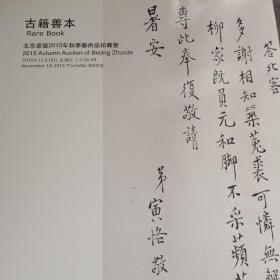 古籍善本
Rare Book
北京卓德2015年秋季藝術品拍賣會
2015 Autumn Auction of Beijing Zhuode
2015年11月19日 星期四
November 19, 2015 Thursday Beijing
答北客
多謝相知築菟裘可憐無
柳家既負元和腳不采蘋
專此奉復敬請
暑安
弟寅恪敬